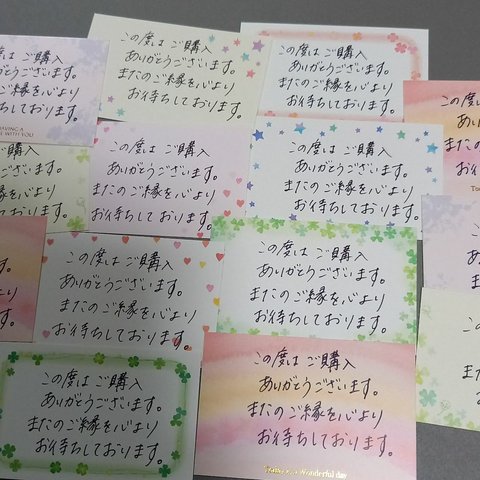 がとうございます。
またのご縁を心より
お待ちしております。
HAVING A
WITH YOU
この度は ご購入
ありがとうございます。
またのご縁を心より
お待ちしております。
この度は ご購入
ありがとうございます。
またのご縁を心より
お待ちしております。
この度は ご購入
ありがとうござ
またのご縁を
お待ちして
ございます。
ご縁を心より
しております。
この度は ご購入
ありがとうございます。
またのご縁を心より
お待ちしております。
この度は ご購入
ありがとうございます。
またのご縁を心より
お待ちしております。
この度は ご購入
ありがとうございます。
またのご縁を心より
お待ちしております。
この度は ご購入
ありがとうございます。
またのご縁を心より
お待ちしております。
この度は ご購入
ありがとうございます。
またのご縁を心より
お待ちしております。
この度は ご購入
ありがとうございます。
またのご縁を心より
お待ちしております。
Wonderful day